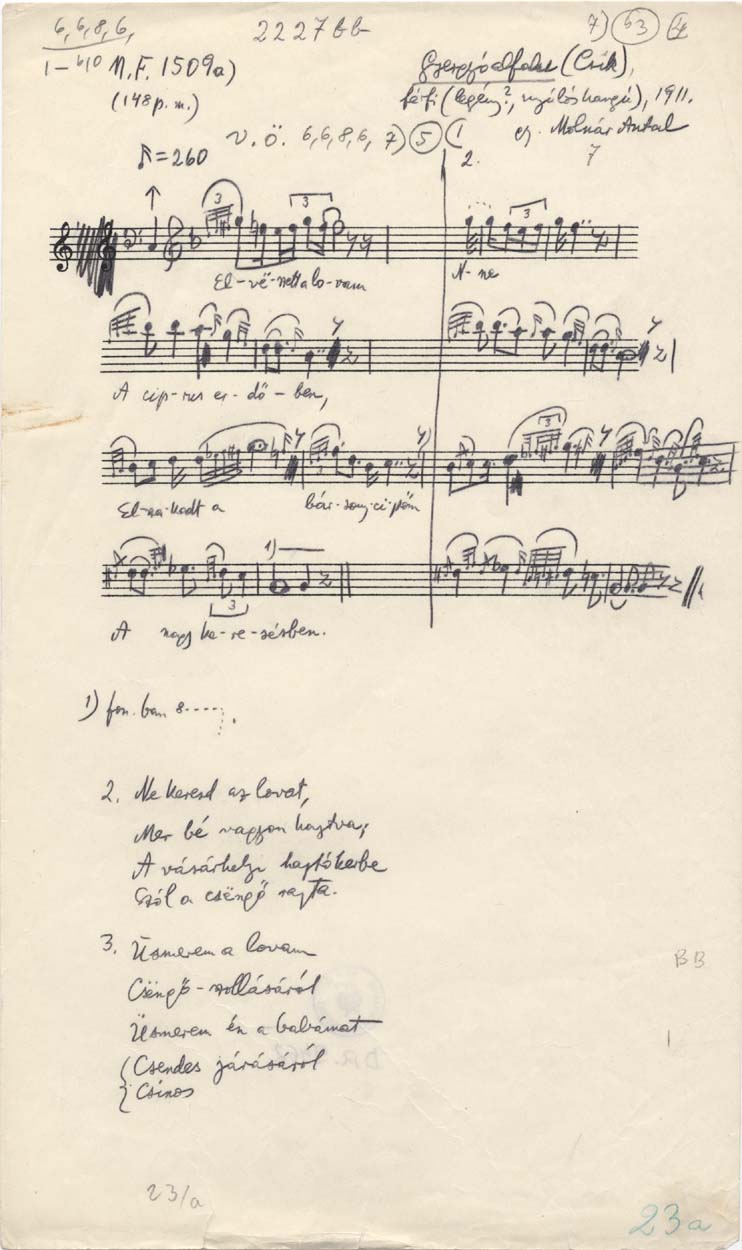 6,6,8,6,
2227 bb
7) b3 (4
1–b10 M.F. 1509a)
Gyergyóalfalu (Csík),
(148 p. m.)
férfi (legény?, nyúlós hangú), 1911.
V. ö. 6,6,8,6, 7) 5 (1
gy. Molnár Antal
=260
2.
7
3
3
3
El-vë-szett a lo-vam
N-ne
A cip-rus er-dő-ben,
3
1)
El-sza-kadt a bár-sony-ci-põm
1)
3
A nagy ke-re-sésben.
1) fon. ban 8-----
2. Ne keresd az lovat,
Mer bé vagyon hajtva;
A vásárhelyi hajtókerbe
Szól a csëngő rajta.
3. Üsmerem a lovam
Csëngő-szollásáról
Üsmerem én a babámat
Csendes járásáról
Csinos
BB
23/a
23a